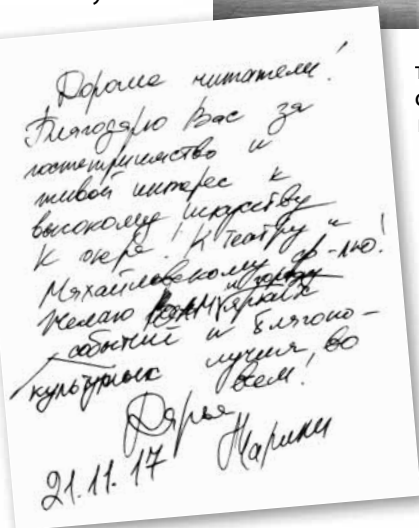 Дорогие читатели!
Благодарю Вас за
гостеприимство и
живой интерес к
высокому искусству
К опере! К Театру и
Михайловскому ф-лю!
Желаю Вам и городу ярких
событий и благопо-
культурных лучия, во
всем!
Дарья
Марини
21.11.17